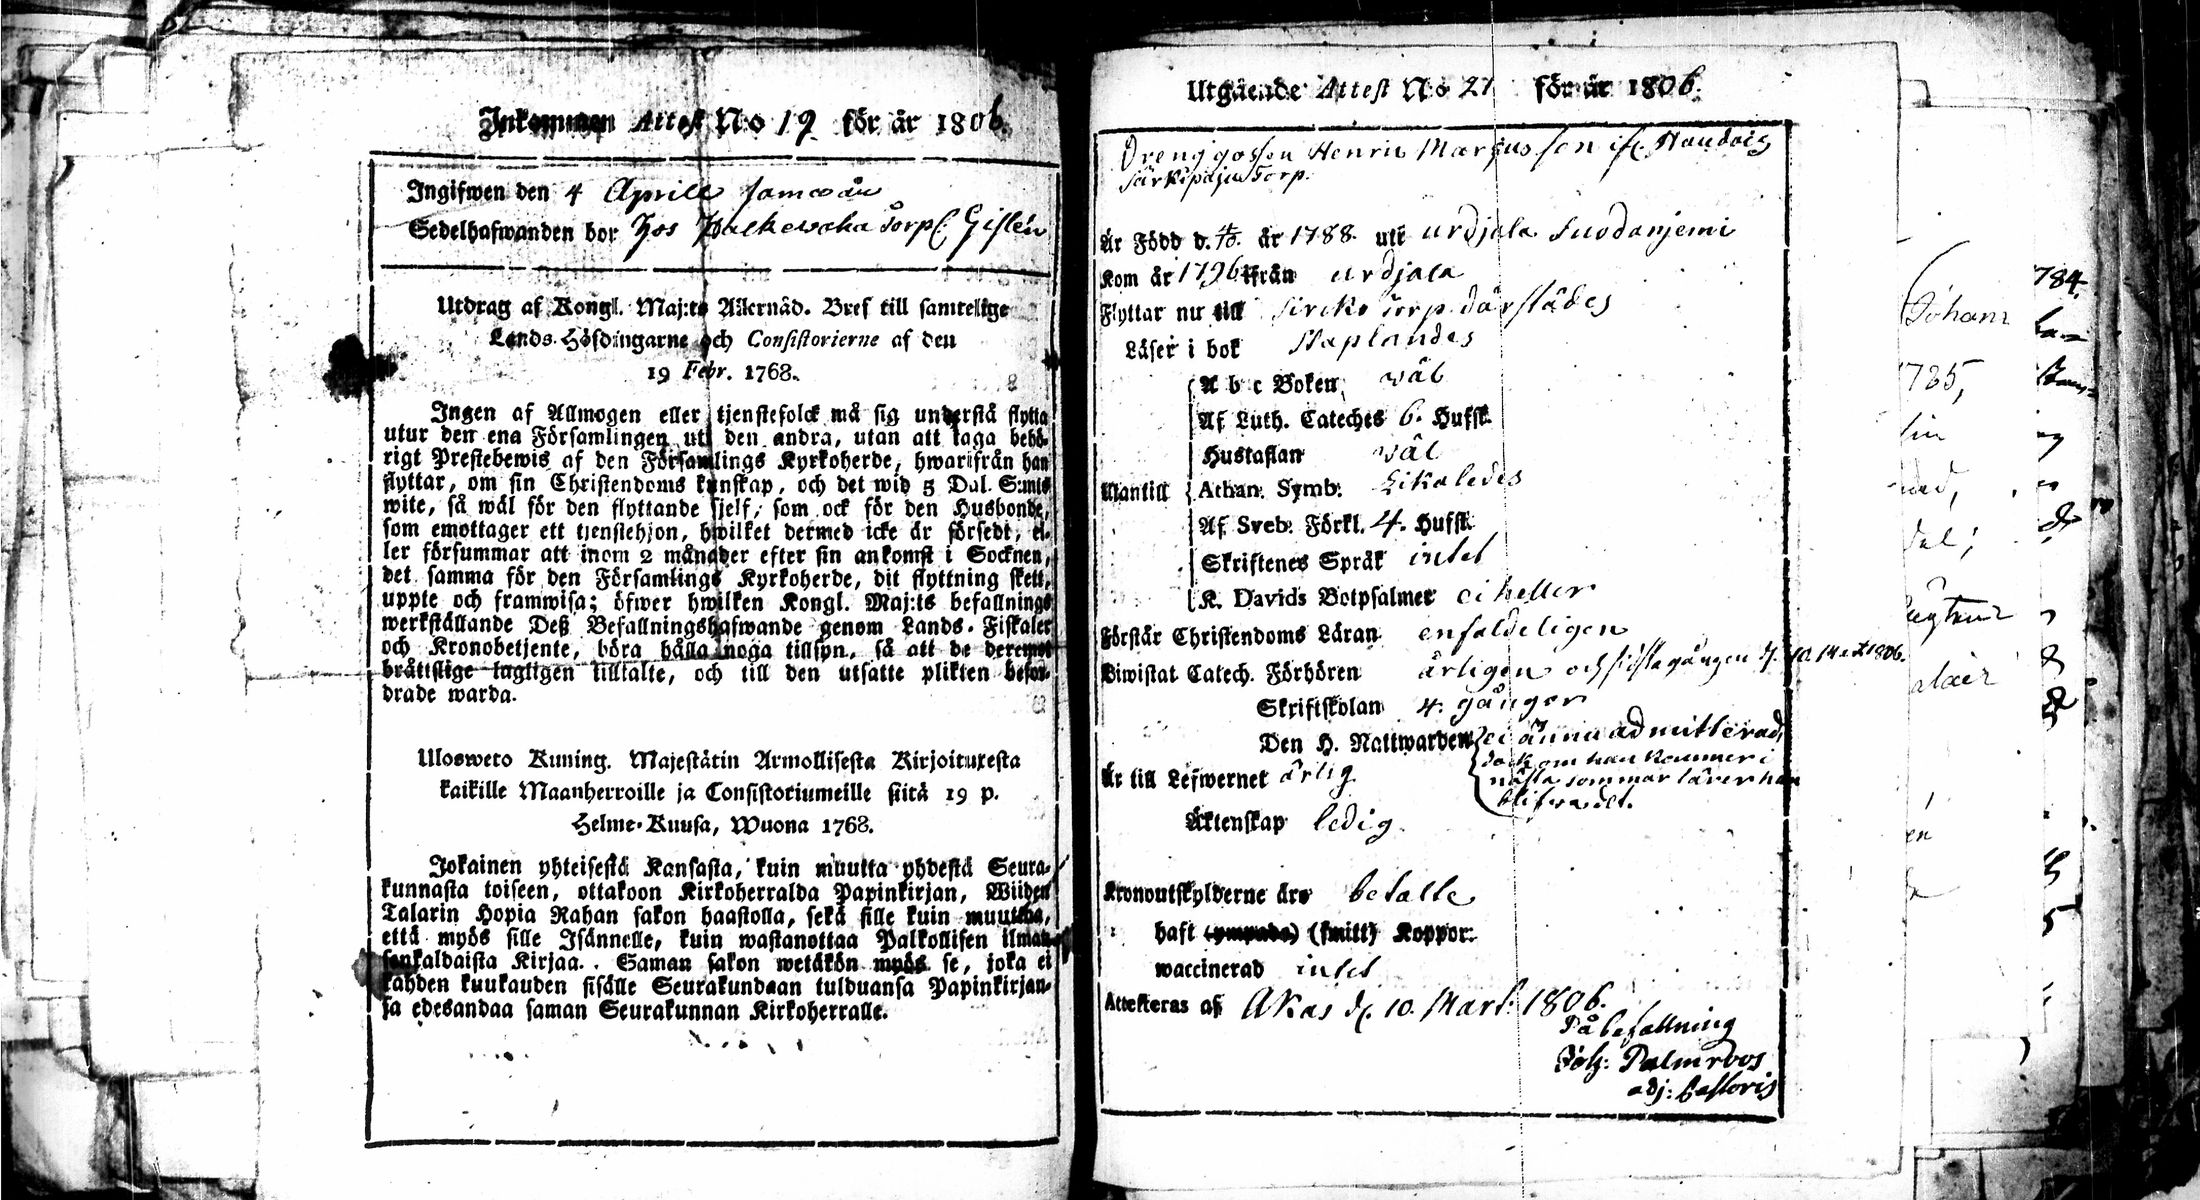 Inkommen Attest No 19 för år 1806.
Ingifwen den 4 Aprill samma år
Sedelhafwanden bor hos Torp
Utdrag af Kongl. Maj:ts Allernåd. Bref till samtelige
Lands-Höfdingarne och Consistorierne af den
19 Febr. 1768.
Ingen af Allmogen eller tjenstefolck må sig understå flytta
utur den ena Församlingen uti den andra, utan att taga behö-
rigt Prestebewis af den Församlings Kyrkoherde, hwarifrån han
flyttar, om sin Christendoms kunskap, och det wid 5 Dal. S:mts
wite, så wäl för den flyttande sjelf, som ock för den Husbonde,
som emottager ett tjenstehjon, hwilket dermed icke är försedt, el-
ler försummar att inom 2 månader efter sin ankomst i Socknen,
det samma för den Församlings Kyrkoherde, dit flyttning skett,
uppte och framwisa; öfwer hwilken Kongl. Maj:ts befallnings
werkställande Deß Befallningshafwande genom Lands-Fiskaler
och Kronobetjente, böra hålla noga tillsyn, så att de deremot
bråttslige lagligen tilltalte, och till den utsatte plikten befor-
drade warda.
Ulosweto Kuning. Majestätin Armollisesta Kirjoituxesta
kaikille Maanherroille ja Consistoriumeille siitä 19 p.
Helme-Kuusa, Wuona 1768.
Jokainen yhteisestä Kansasta, kuin muutta yhdestä Seura-
kunnasta toiseen, ottakoon Kirkoherralda Papinkirjan, Wiiden
Talarin Hopia Rahan sakon haastolla, sekä sille kuin muuttaa,
että myös sille Isännelle, kuin wastanottaa Palkollisen ilman
senkaldaista Kirjaa. Saman sakon wetäkön myös se, joka ei
kahden kuukauden sisälle Seurakundaan tulduansa Papinkirjan-
sa edesandaa saman Seurakunnan Kirkoherralle.
Utgående Attest No 21 för år 1806.
Drenggossen Henric Marcusson
Särkipajun Torp.
Är Född d. år 1788. uti Urdjala
Kom år 1796 ifrån Urdjala
Flyttar nu till Torp därstädes
Läser i bok Staplandes
A b c Boken wäl
Af Luth. Cateches 6. Hufst.
Hustaflan wäl
Utantill Athan. Symb. Likaledes
Af Sveb. Förkl. 4. Hufst.
Skriftenes Språk intet
K. Davids Botpsalmer ei heller
Förstår Christendoms Läran enfaldeligen
Biwistat Catech. Förhören årligen och sista gången d. 10. 1806.
Skriftskolan 4. gånger
Den H. Nattwarden ei ännu admitterad,
dock om han kommer i
nästa sommar lärer han
blifwa det.
Är till Lefwernet ärlig
Äktenskap ledig
Kronoutskylderne äro betalte
haft (ympade) (smitt) Koppor.
waccinerad intet
Attesteras af Akas d. 10. Mart. 1806.
På befallning
Joh: Palmroos
adj: Pastoris
784.
Johan
1785,